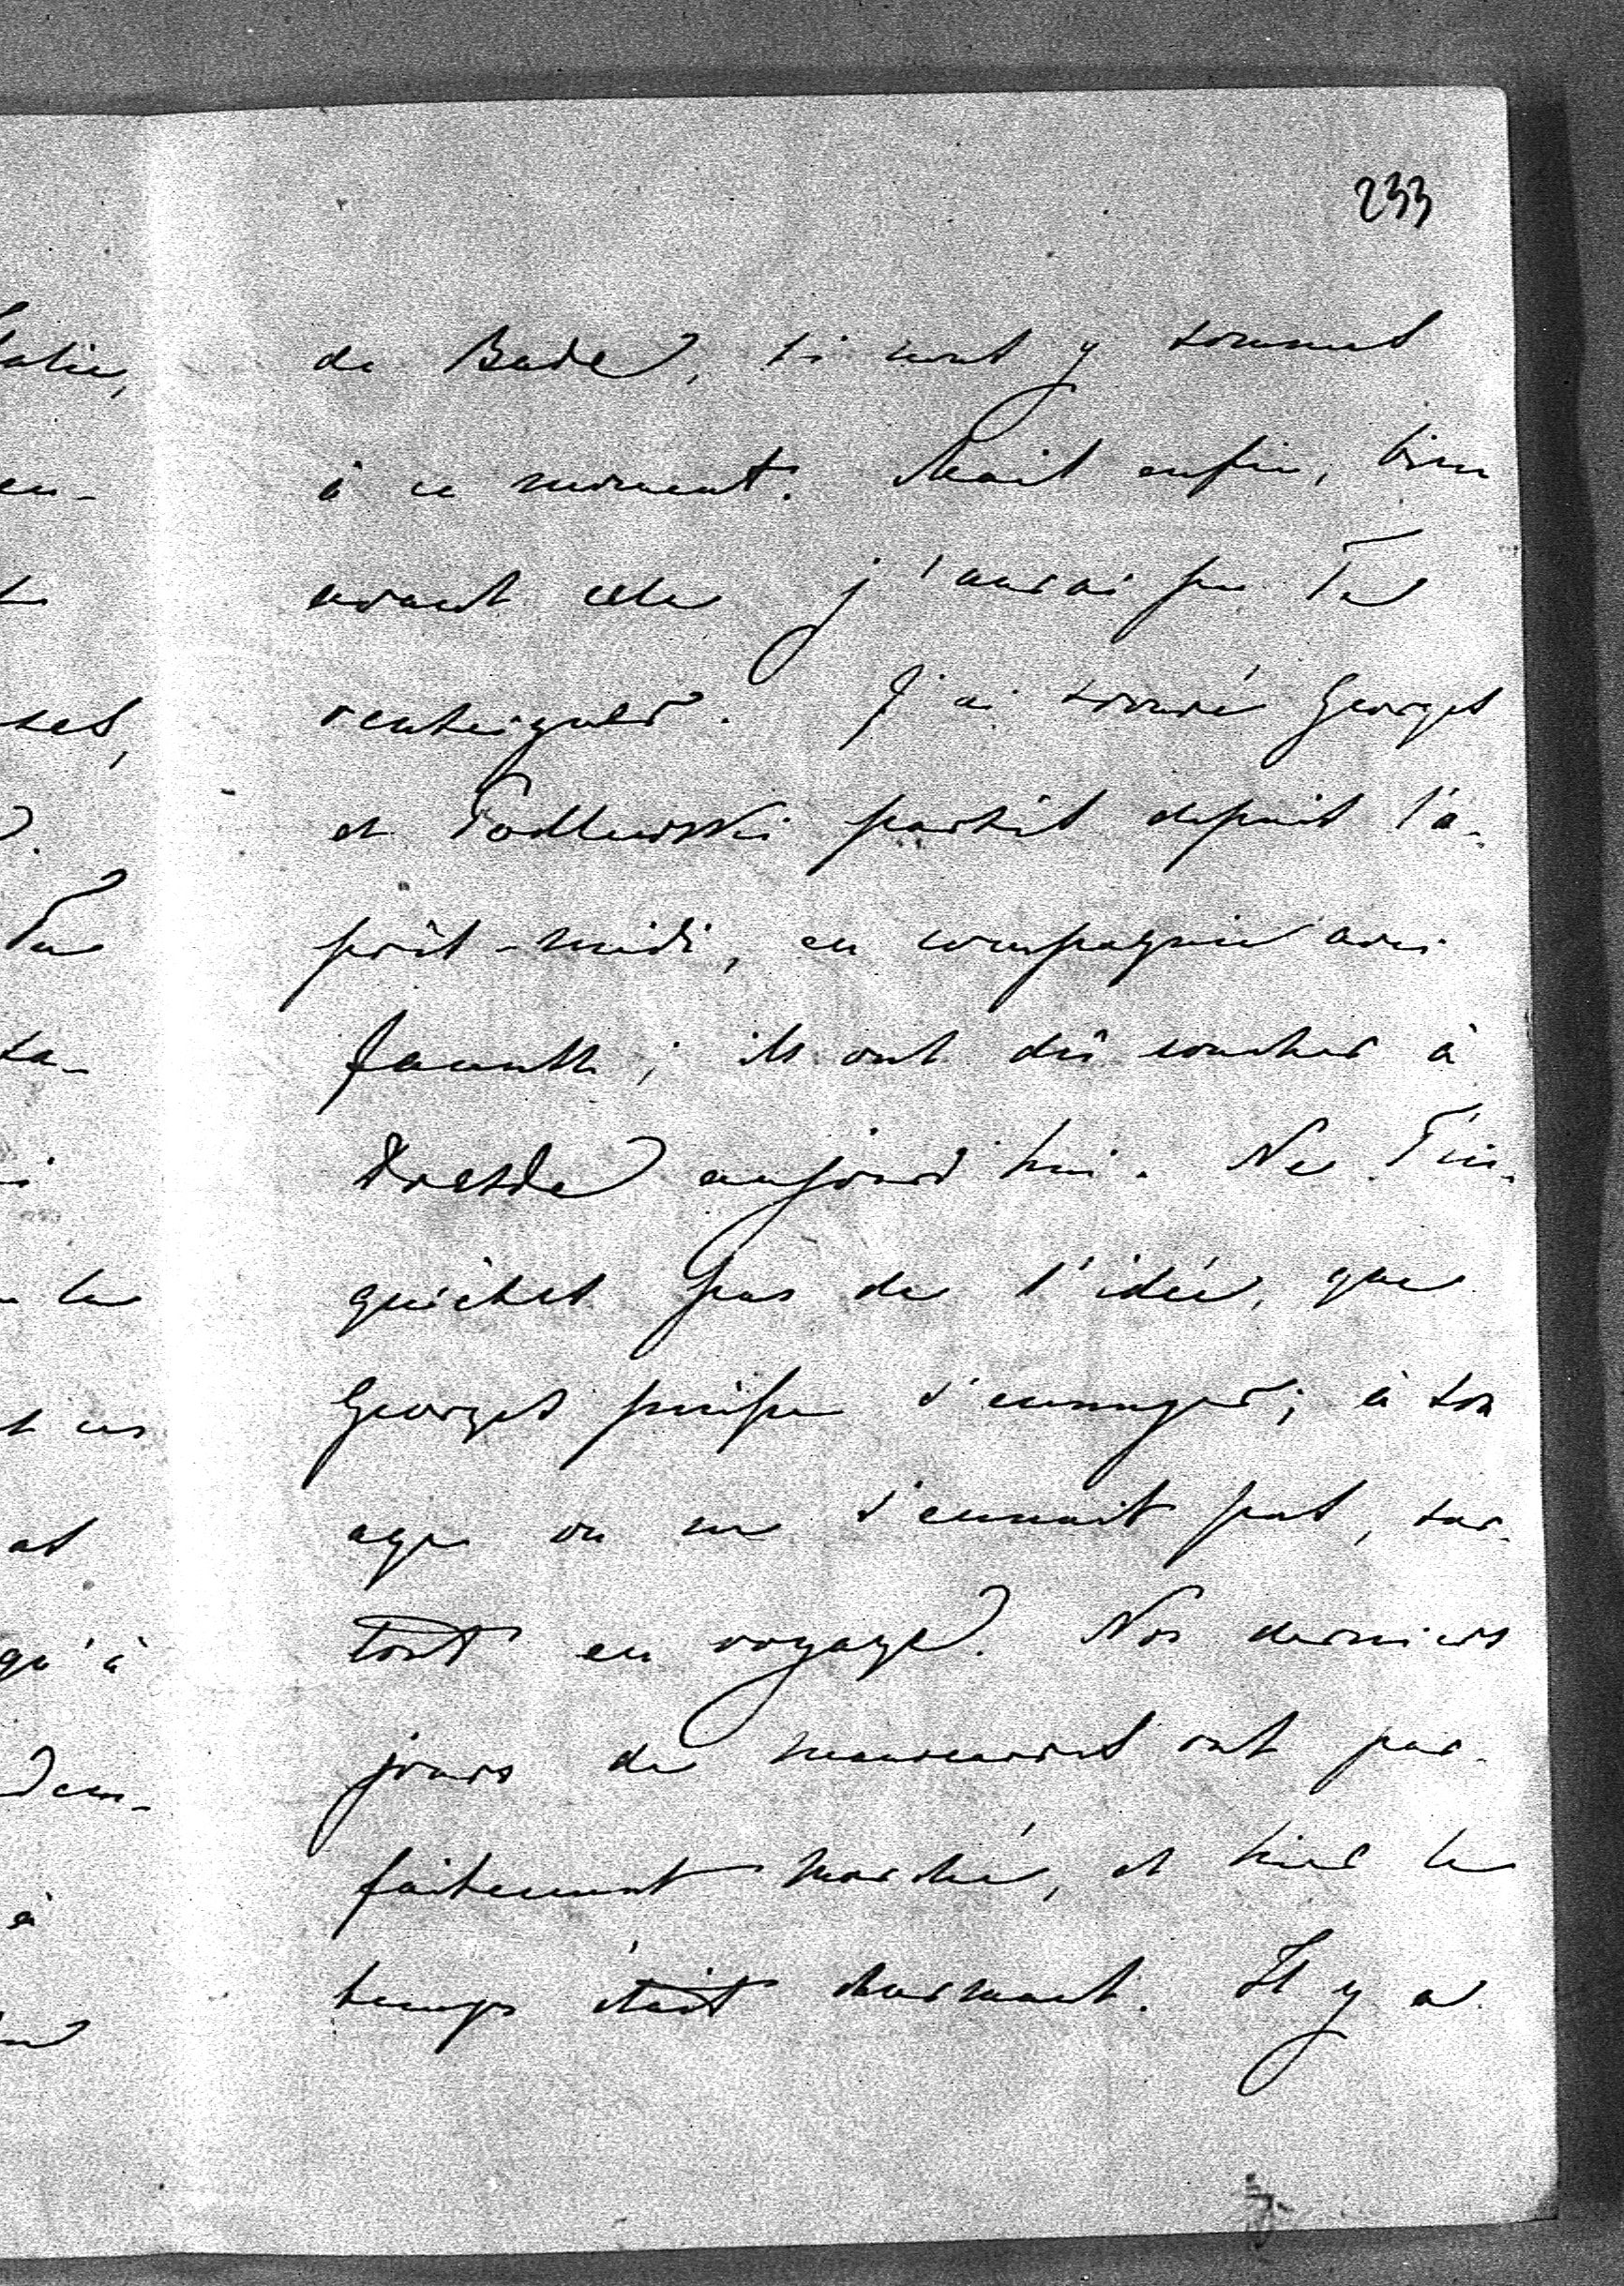 233
de Bade, si nous y sommes
à ce moment. Mais enfin, bien
avant cela j'aurai pu Te
renseigner. J'ai trouvé Georges
et Podlewski partis depuis l'a-
près-midi, en compagnie avec
; ils ont dû coucher à
Dresde aujourd'hui. Ne T'in-
quiètes pas de l'idée, que
Georges puisse s'ennuyer; à son
age on ne s'ennuit pas, sur-
tout en voyage. Nos derniers
jours de manœuvres ont par-
faitement marché, et hier le
temps était charmant. Il y a